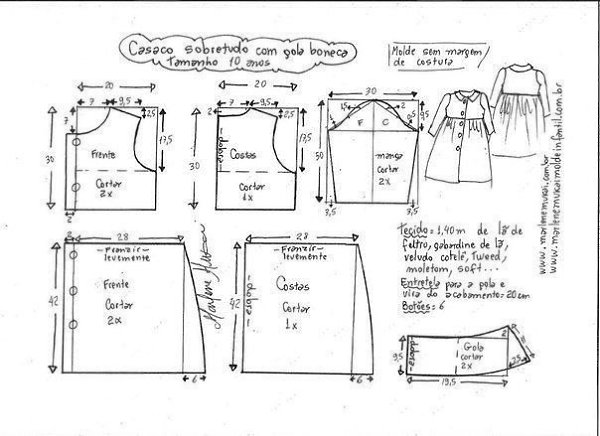 Casaco sobretudo com gola boneca
Tamanho 10 anos
Molde sem margem
de costura
20
7
9,5
2,5
7
17,5
30
Frente
Cortar
2x
2
20
7
9,5
2,5
17,5
30
dobra
Costas
Cortar
1x
30
1,5
2
9,5
0,5
F
C
50
manga
Cortar
2x
3,5
3,5
2
28
-Franzir-
levemente
42
Frente
Cortar
2x
6
Marlene Mukai
28
-Franzir-
levemente
42
dobra
Costas
Cortar
1x
6
Tecido = 1,40m de lã de
feltro, gabardine de lã,
veludo cotelê, Tweed,
moletom, soft...
Entretela para a gola e
vira do acabamento = 20cm
Botões = 6
www.marlenemukai.com.br
www.marlenemukaimoldeinfantil.com.br
9,5
dobra
Gola
cortar
2x
2
8
2,5
19,5